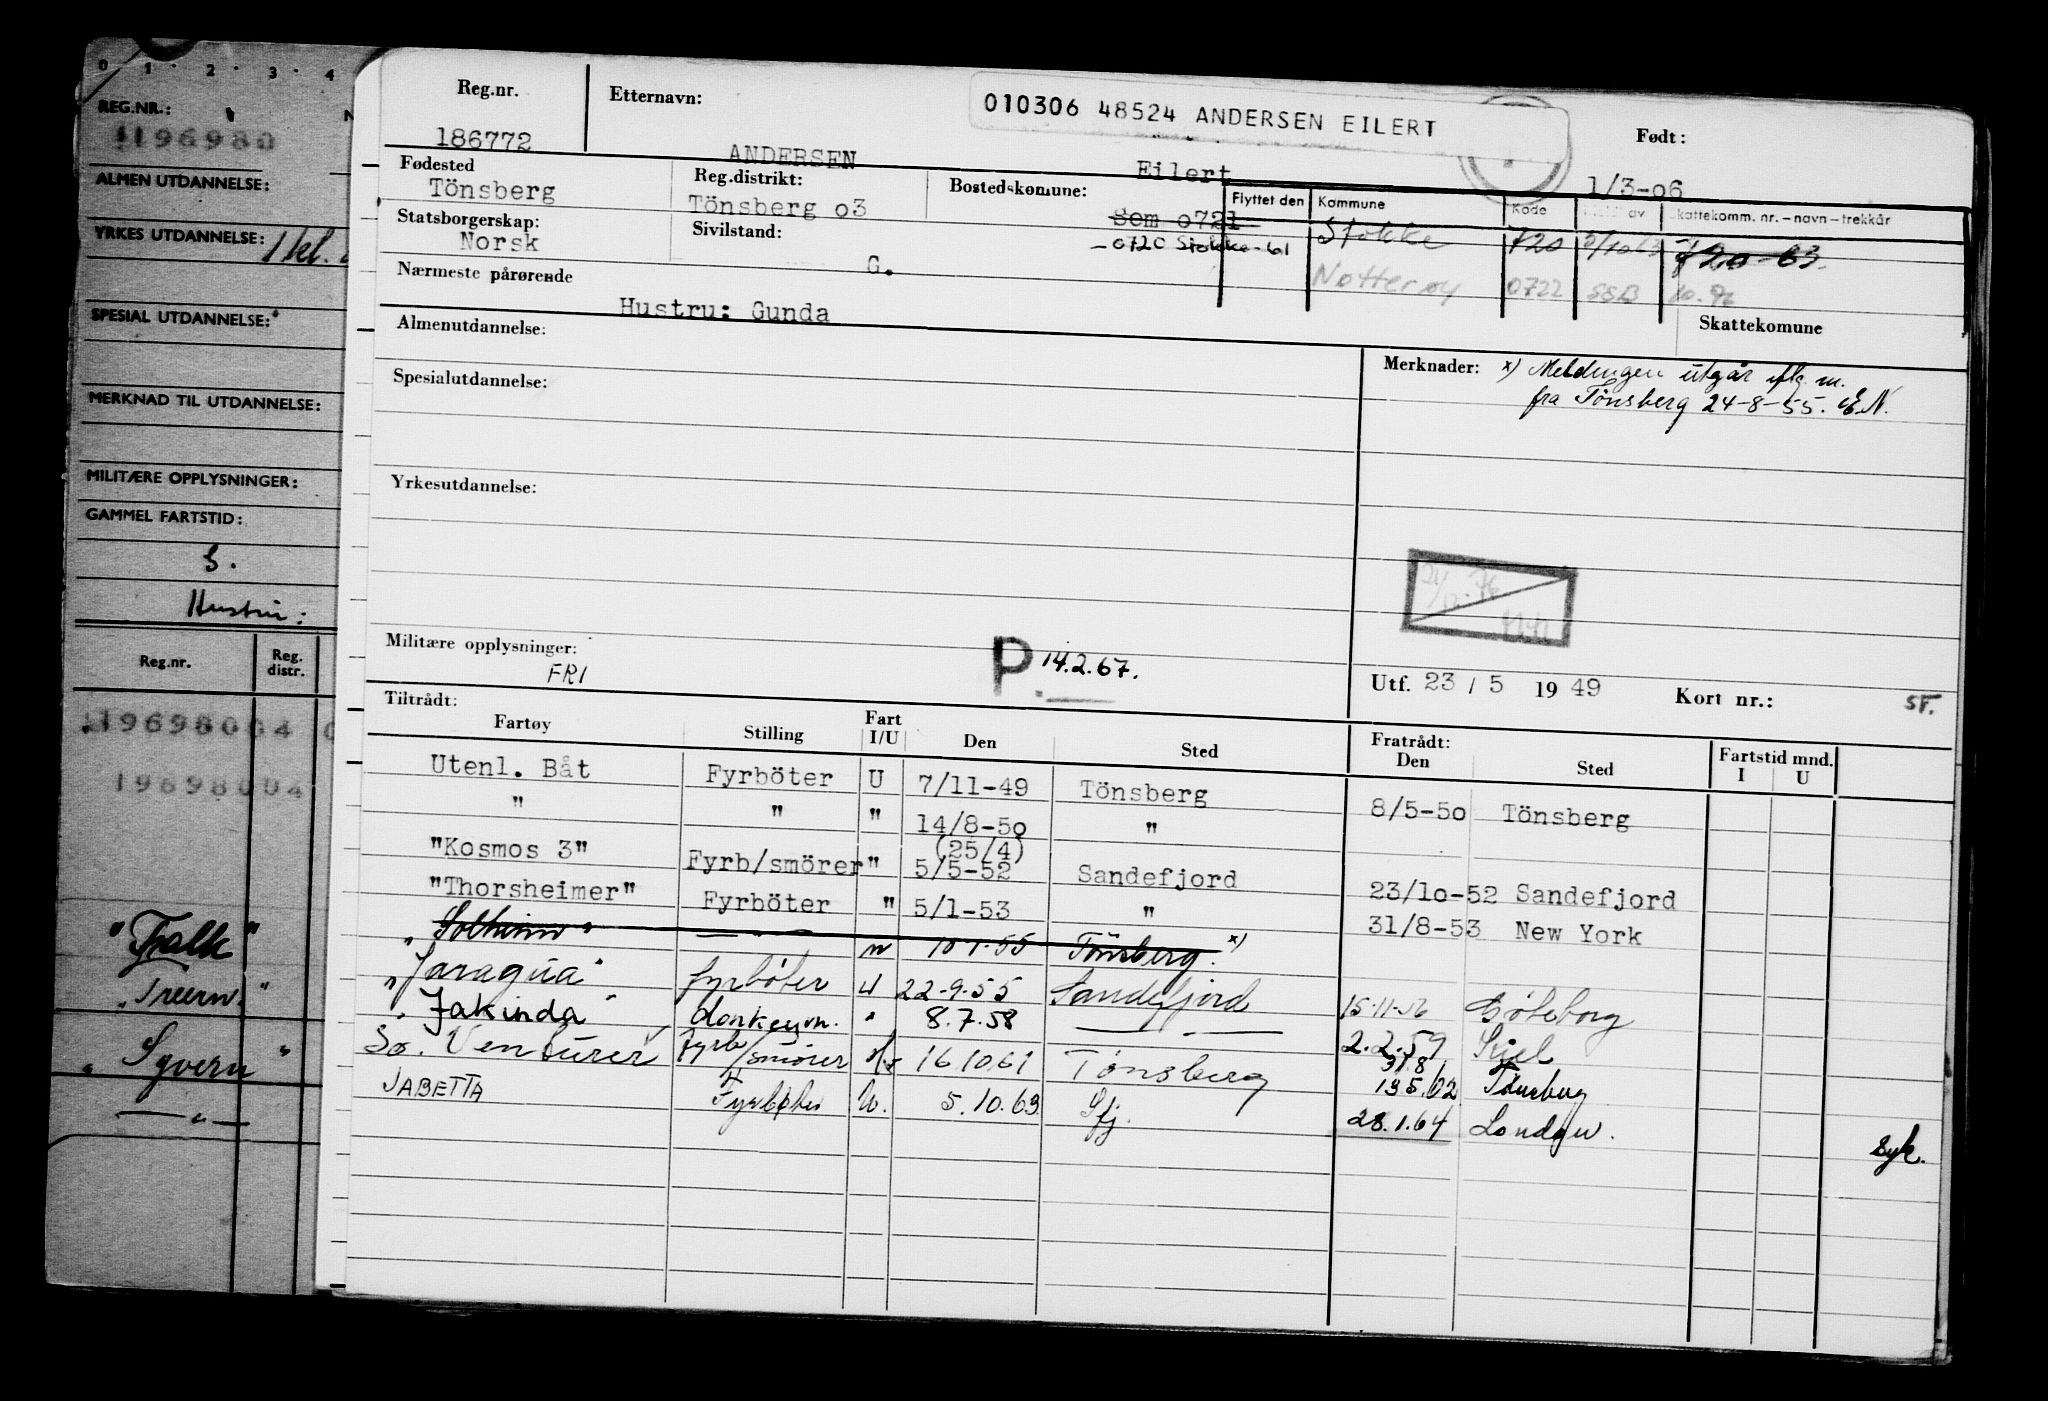 0 1 2 3 4
REG.NR.:
196980
ALMEN UTDANNELSE:
YRKES UTDANNELSE:
SPESIAL UTDANNELSE:
MERKNAD TIL UTDANNELSE:
MILITÆRE OPPLYSNINGER:
GAMMEL FARTSTID:
Hustru:
Reg.nr. Reg. distr.
19698004
19698004
"Falk"
"Syvern"
— " —
010306 48524 ANDERSEN EILERT
Reg.nr. Etternavn: Født:
186772 ANDERSEN Eilert 1/3-o6
Fødested Reg.distrikt: Bostedskomune: Flyttet den Kommune Kode Skattekomm. nr. – navn – trekkår
Tönsberg Tönsberg o3 Sem o721 Stokke 720 720-63
Statsborgerskap: Sivilstand: -0720 Stokke-61
Norsk G. Nøtterøy 0722 SSB
Nærmeste pårørende
Hustru: Gunda Skattekomune
Almenutdannelse: Merknader: x) Meldingen utgår
fra Tönsberg 24-8-55. E.N.
Spesialutdannelse:
Yrkesutdannelse:
Militære opplysninger: FRI P 14.2.67.
Utf. 23 / 5 19 49 Kort nr.: SF.
Tiltrådt: Fratrådt:
Fartøy Stilling Fart I/U Den Sted Den Sted Fartstid mnd. I U
Utenl. Båt Fyrböter U 7/11-49 Tönsberg 8/5-5o Tönsberg
" " " 14/8-5o "
(25/4)
"Kosmos 3" Fyrb/smörer " 5/5-52 Sandefjord 23/1o-52 Sandefjord
"Thorsheimer" Fyrböter " 5/1-53 " 31/8-53 New York
"Solheim" — " — 10-1-55 Tönsberg. x)
"Jaragua" fyrbøter U 22-9-55 Sandefjord 15-11-56 Göteborg
"Jakinda" donkeym. " 8.7.58 — " — 2.2.59 Kiel
So. Venturer fyrb/smører 16.10.61 Tønsberg 31.8 19.5.62 Tønsberg
JABETTA Fyrbøter U. 5.10.63 Sfj. 28.1.64 London. syk.